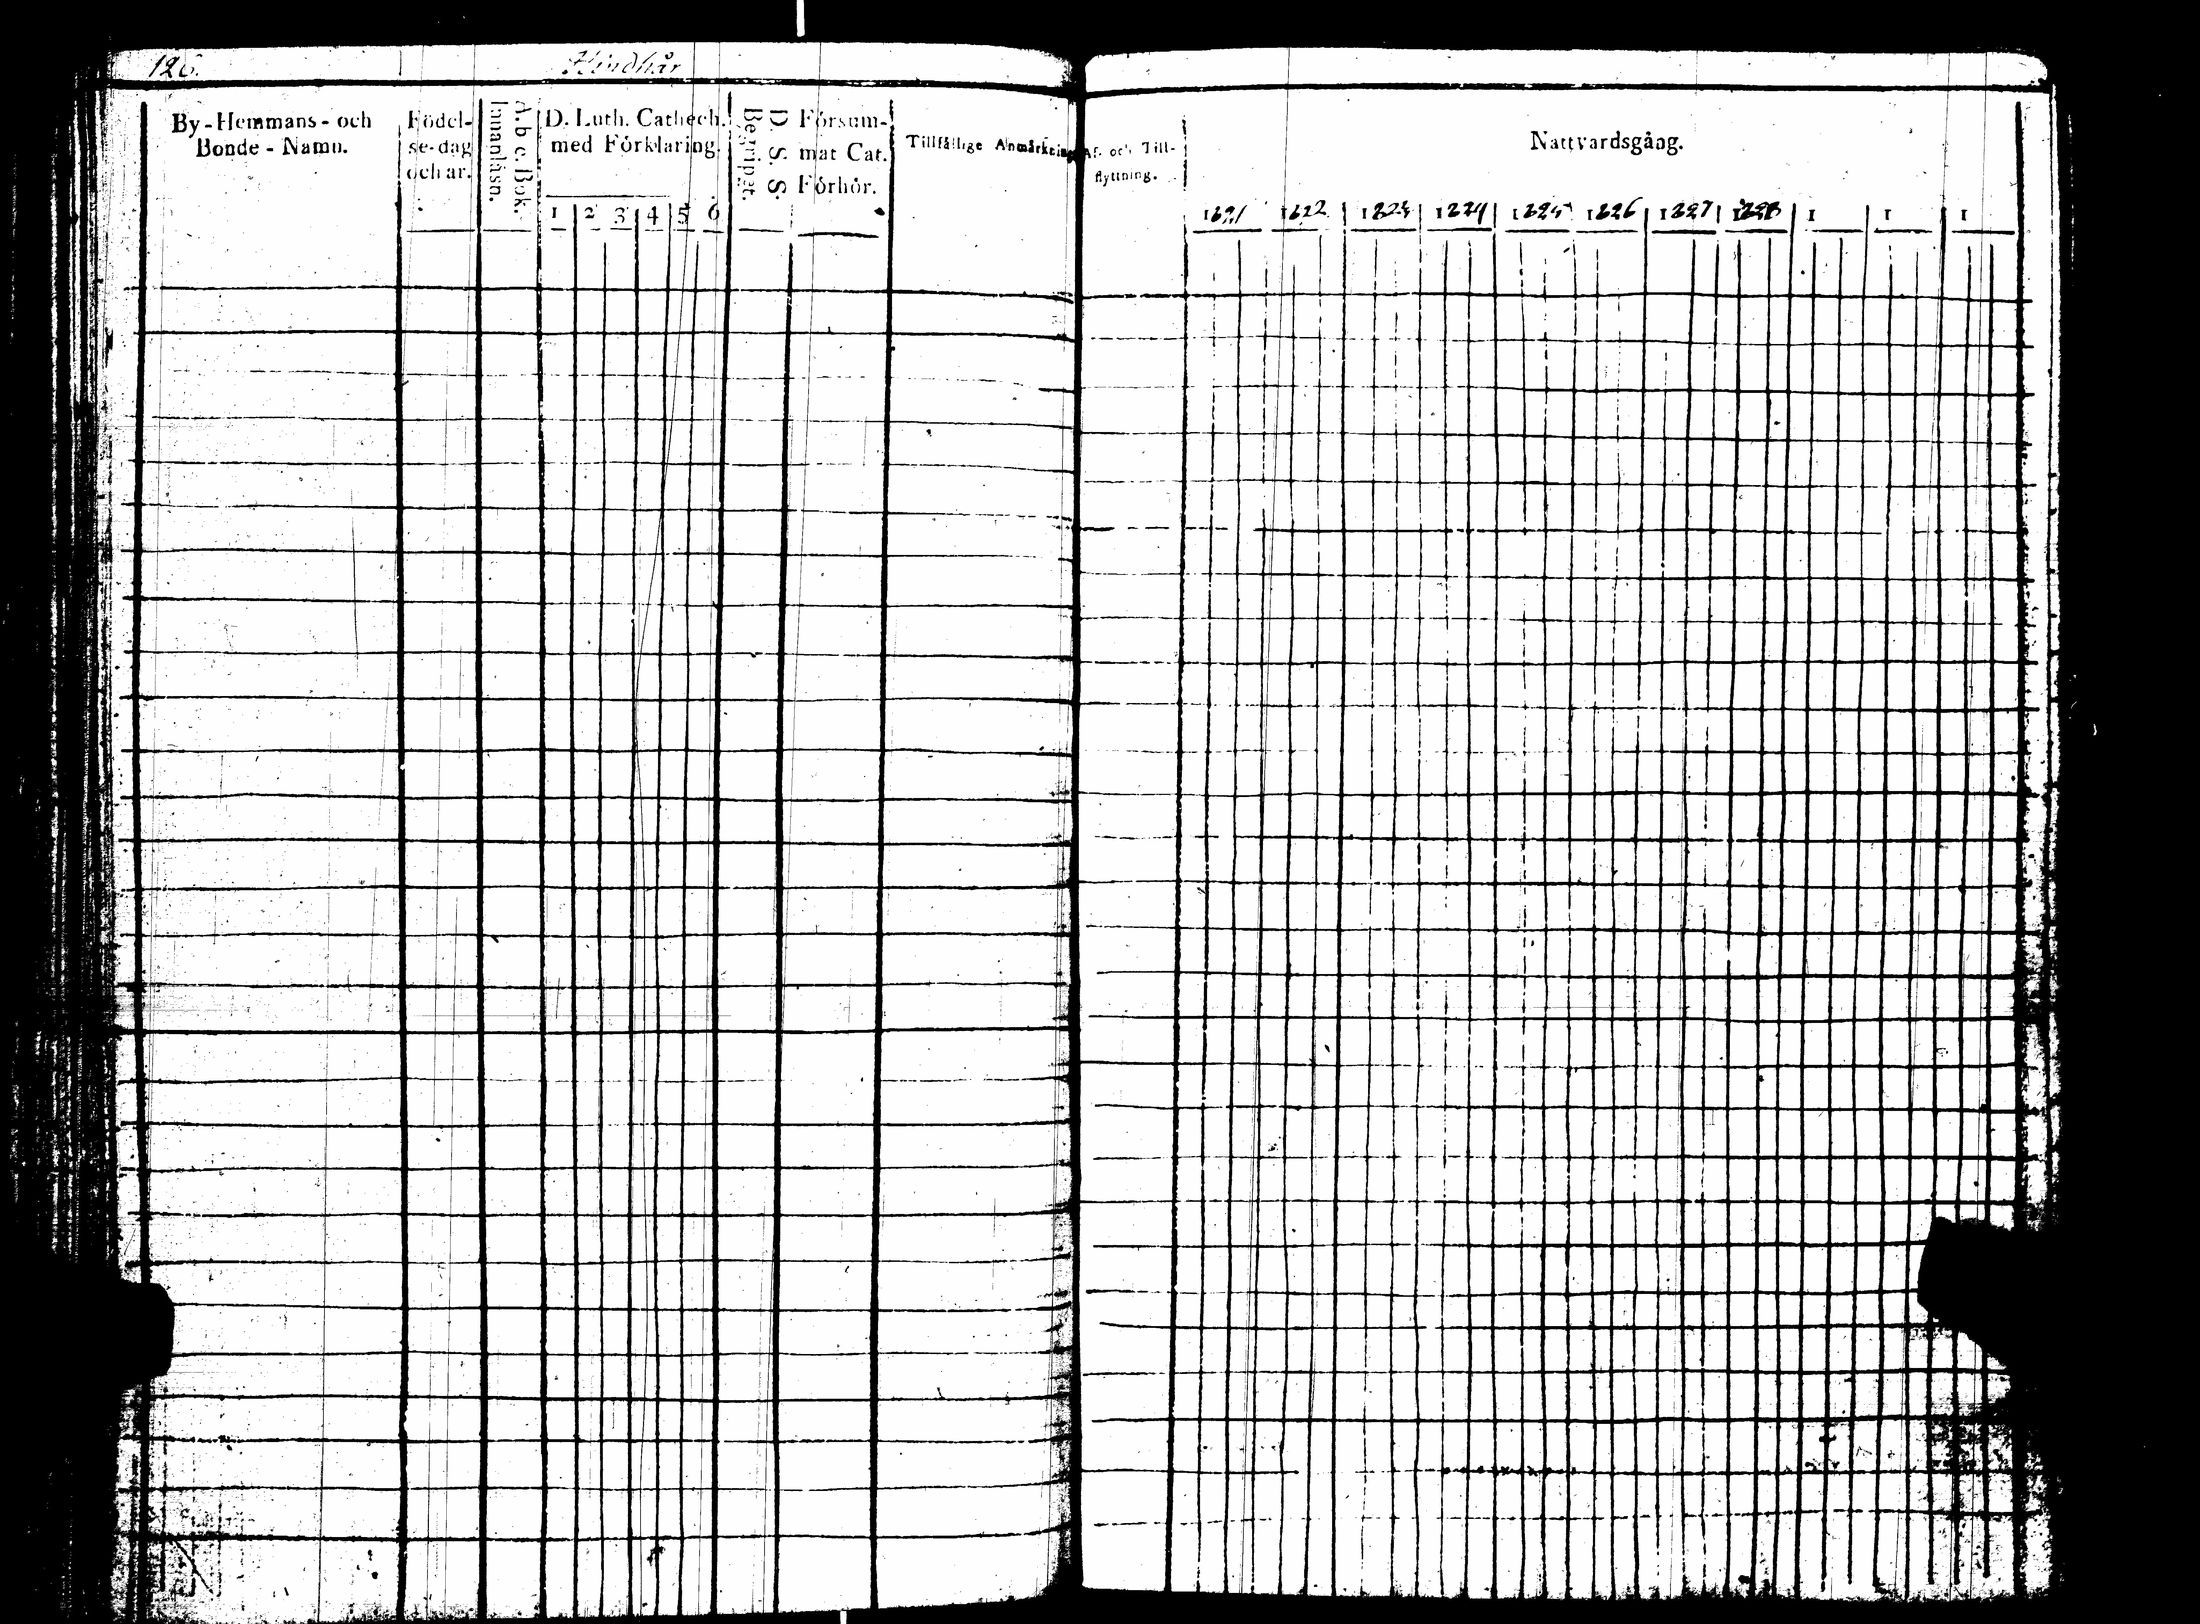 126.
Hindhår
By-Hemmans-och
Bonde-Namn.
Födel-
se-dag
och år.
A. b c. Bok.
Innanläsn.
D. Luth. Cathech.
med Förklaring.
1 2 3 4 5 6
D. S. S.
Begripet.
Försum-
mat Cat.
Förhör.
Tillfällige Anmärkning
Af- och Till-
flyttning.
Nattvardsgång.
1821 1822 1823 1824 1825 1826 1827 1828 1 1 1